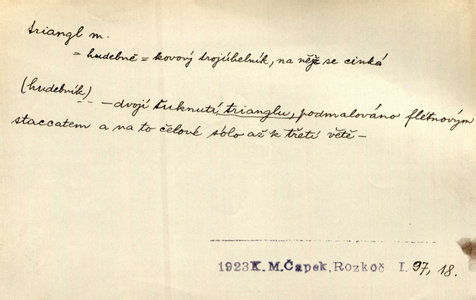 triangl m.
= hudebně = kovový trojúhelník, na nějž se cinká
(hudebník) - - — dvojí ťuknutí trianglu, podmalováno flétnovým
staccatem a na to čelové sólo až k třetí větě —
1923 K. M. Čapek, Rozkoč I. 97, 18.